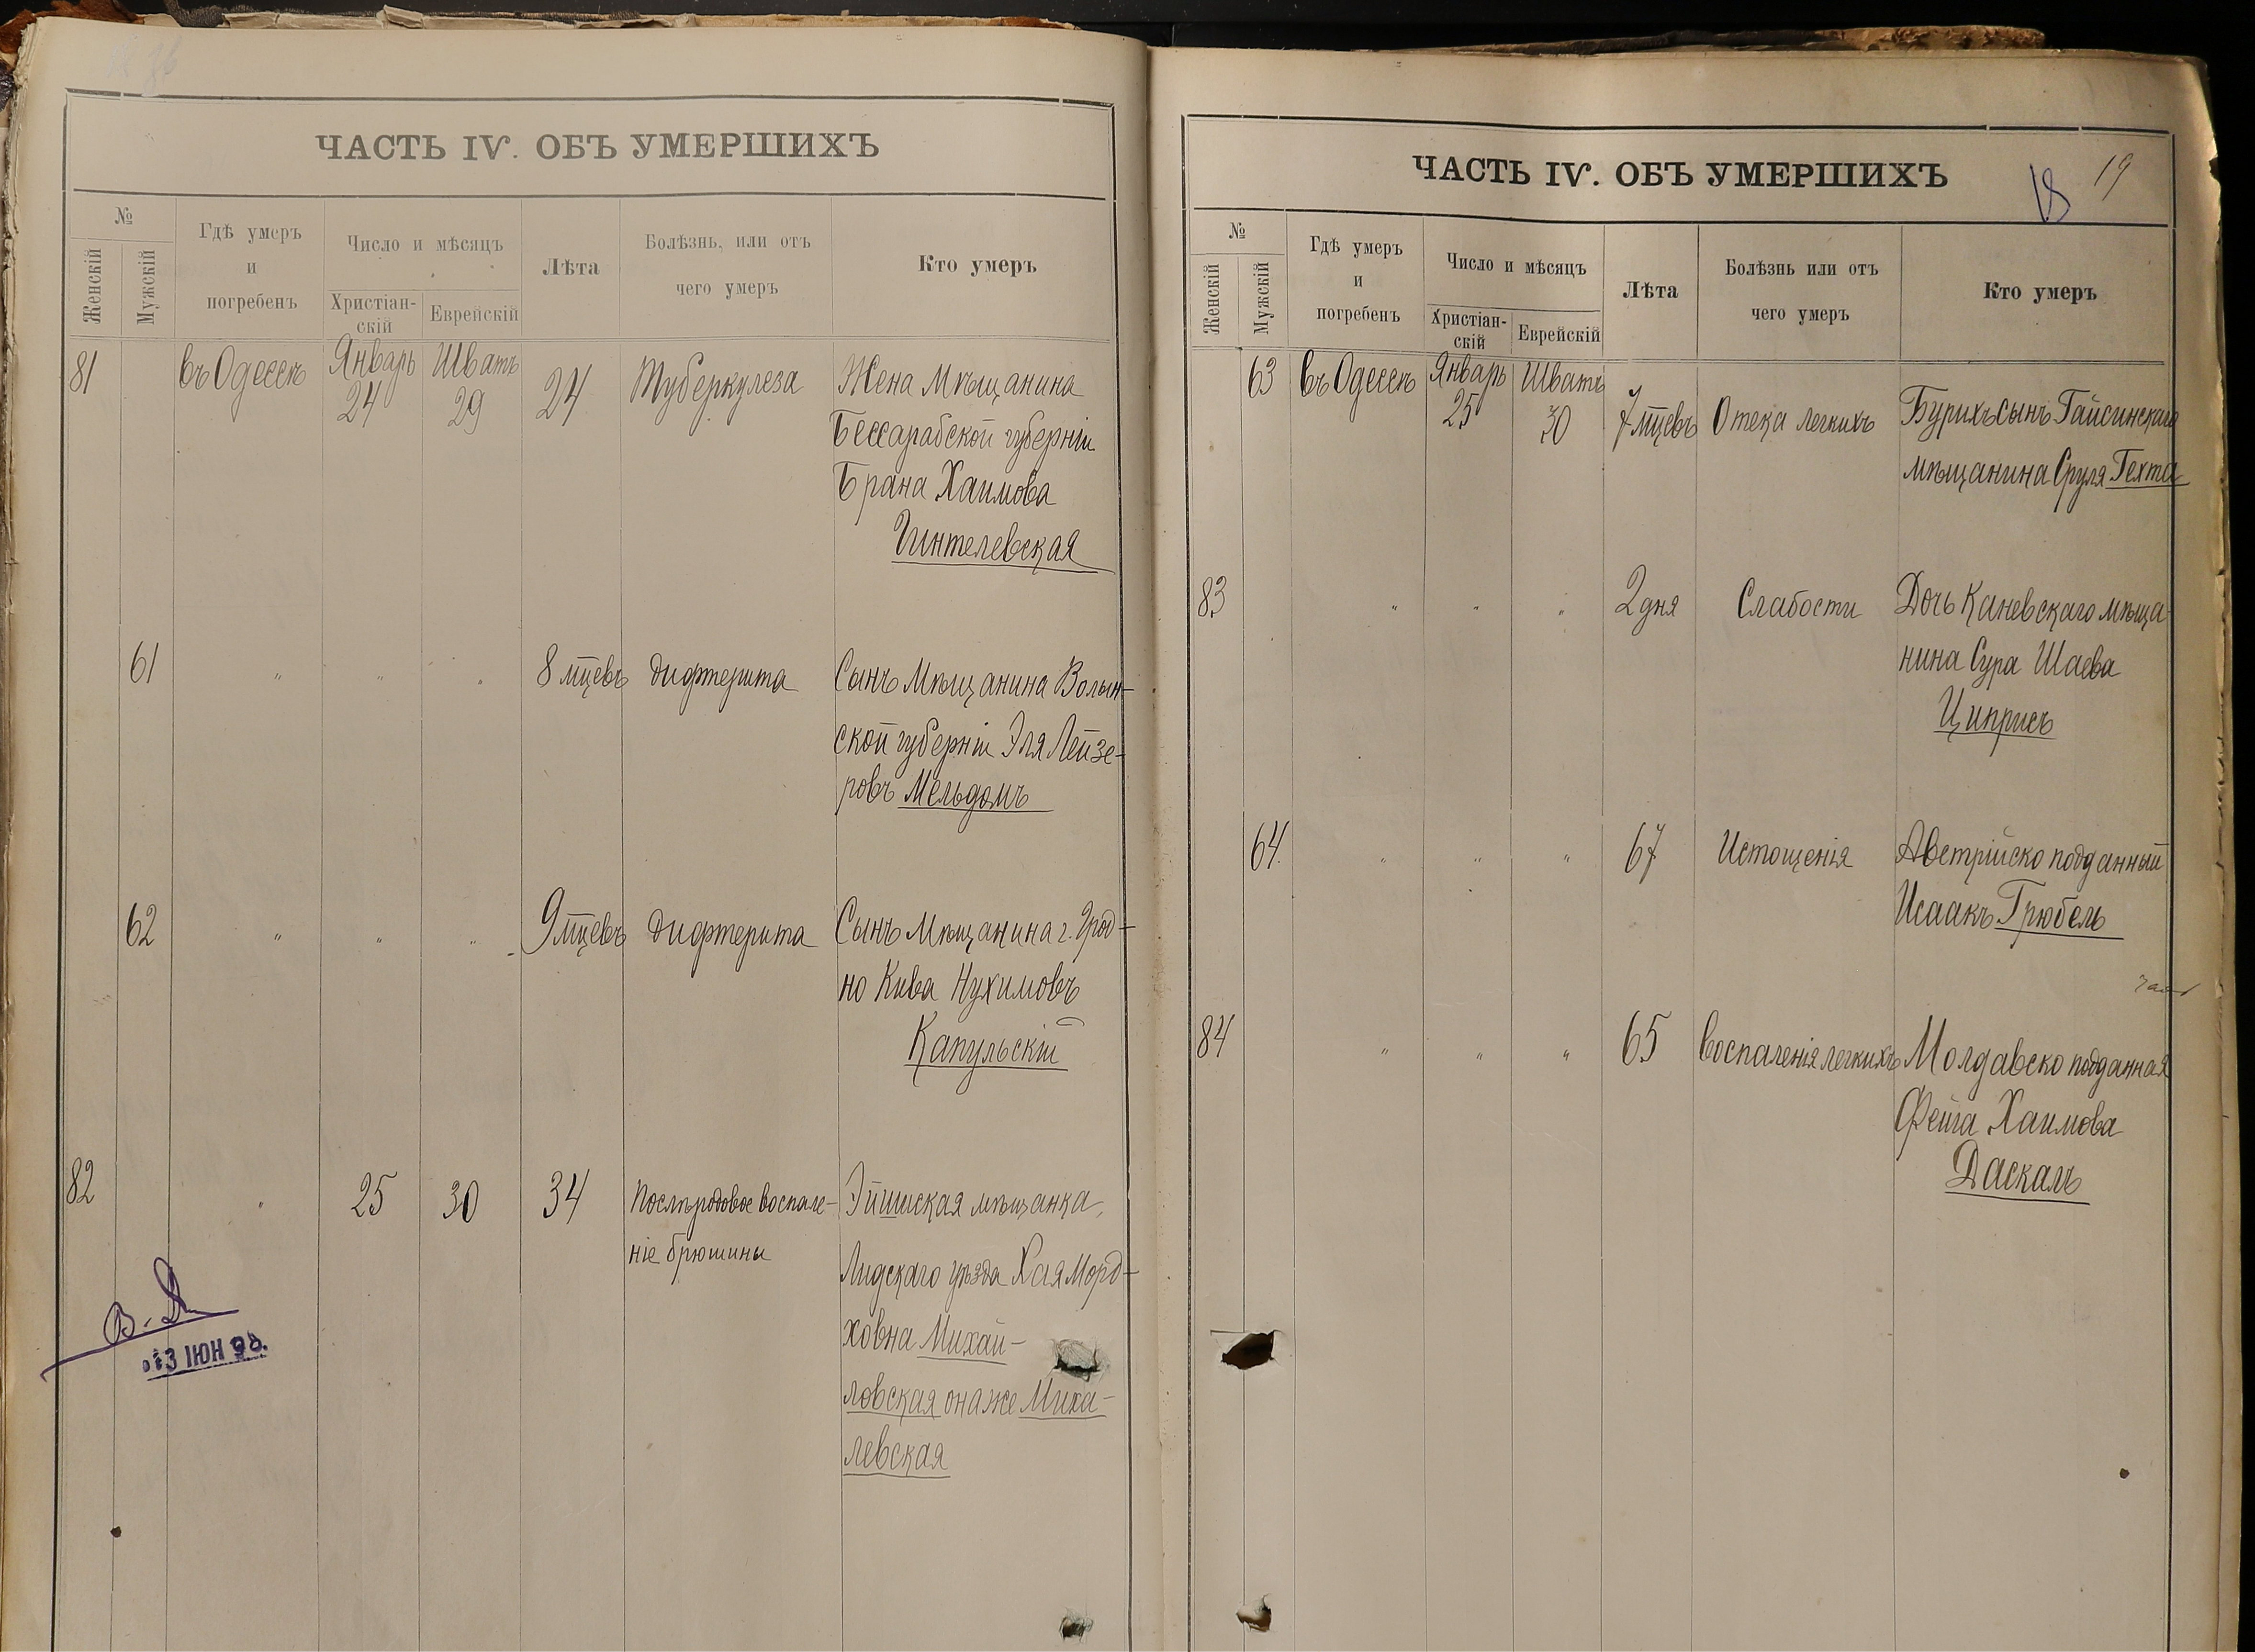 ЧАСТЬ IV. ОБЪ УМЕРШИХЪ
№
Женскій
Мужскій
Гдѣ умеръ
и
погребенъ
Число и мѣсяцъ
Христіан-
скій
Еврейскій
Лѣта
Болѣзнь, или отъ
чего умеръ
Кто умеръ
81 въ Одессѣ Январь 24 Шватъ 29 24 Туберкулеза Жена Мѣщанина
Бессарабской губерніи
Брана Хаимова
Гинтелевская
61 " " " 8 мцевъ дифтерита Сынъ Мѣщанина Волын-
ской губерніи Эля Лейзе-
ровъ Мельдомъ
62 " " " 9 мцевъ дифтерита Сынъ Мѣщанина г. Грод-
но Кива Нухимовъ
Капульскій
82 " 25 30 34 Послѣродовое воспале- Эйшиская мѣщанка,
ніе брюшины
Лидскаго уѣзда Хая Морд-
ховна Михай-
ловская она же Миха-
левская
13 ІЮН 98.
ЧАСТЬ IV. ОБЪ УМЕРШИХЪ
18 19
№
Женскій
Мужскій
Гдѣ умеръ
и
погребенъ
Число и мѣсяцъ
Христіан-
скій
Еврейскій
Лѣта
Болѣзнь или отъ
чего умеръ
Кто умеръ
63 въ Одессѣ Январь 25 Шватъ 30 7 мцевъ Отека легкихъ Бурихъ сынъ Гайсинскаго
мѣщанина Сруля Гехта
83 " " " 2 дня Слабости Дочь Каневскаго мѣща-
нина Сура Шаева
Циприсъ
64 " " " 67 Истощенія Австрійско подданный
Исаакъ Грюбель
84 " " " 65 воспаленія легкихъ Молдавско подданная
Фейга Хаимова
Даскалъ